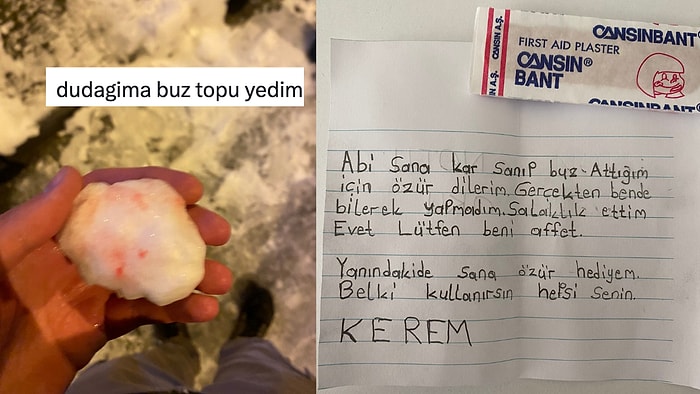 dudagima buz topu yedim
CANSIN A.Ş.
N A.Ş.
CANSINBANT
FIRST AID PLASTER
CANSIN®
BANT
CANSINBANT
Abi sana kar sanıp buz Attığım
için özür dilerim. Gerçekten bende
bilerek yapmadım. Salaklık ettim
Evet Lütfen beni affet.
Yanındakide sana özür hediyem.
Belki kullanırsın hepsi senin.
KEREM